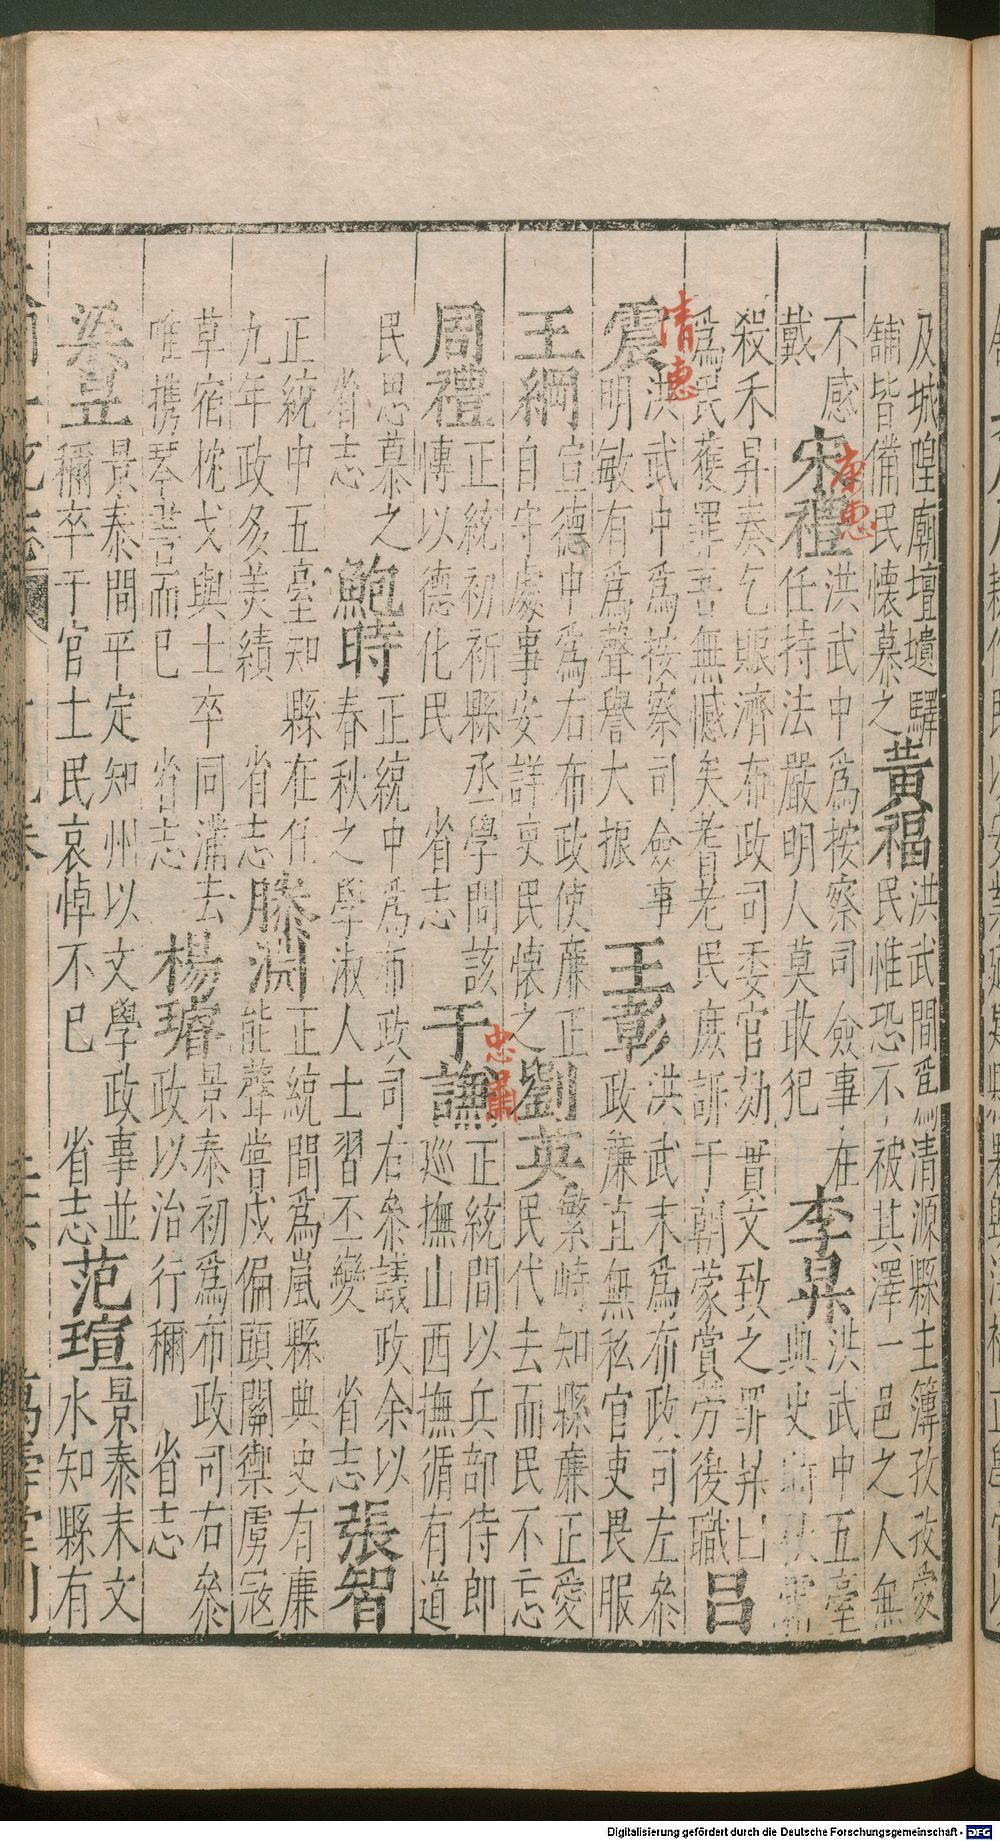 及城隍廟壇壝驛
舖皆備民懷慕之
黃福
洪武間爲清源縣主簿孜孜愛
民惟恐不被其澤一邑之人無
不感
戴
宋禮
康惠
洪武中爲按察司僉事在
任持法嚴明人莫敢犯
李昇
洪武中五臺
典史
殺禾昇奏乞賑濟布政司委官劾實文致之罪昇曰
爲民獲罪吾無憾矣耆老民庶訴于朝蒙賞劳後職
呂
震
清惠
洪武中爲按察司僉事
明敏有爲聲譽大振
王彰
洪武末爲布政司左叅
政廉直無私官吏畏服
王綱
宣德中爲右布政使廉正
自守處事安詳吏民懷之
劉英
繁峙知縣廉正愛
民代去而民不忘
周禮
正統初祈縣丞學問該
博以德化民 省志
于謙
忠肅
正統間以兵部侍郎
巡撫山西撫循有道
民思慕之
省志
鮑時
正統中爲布政司右叅議政余以
春秋之學淑人士習丕變 省志
張智
正統中五臺知縣在任
九年政多美績 省志
滕淵
正統間爲嵐縣典史有廉
能聲嘗戍偏頭關禦虜寇
草宿枕戈與士卒同滿去
唯携琴書而已 省志
楊璿
景泰初爲布政司右叅
政以治行稱 省志
梁昱
景泰間平定知州以文學政事並
稱卒于官士民哀悼不已 省志
范瑄
景泰末文
水知縣有
萬壽堂刊
Digitalisierung gefördert durch die Deutsche Forschungsgemeinschaft - DFG